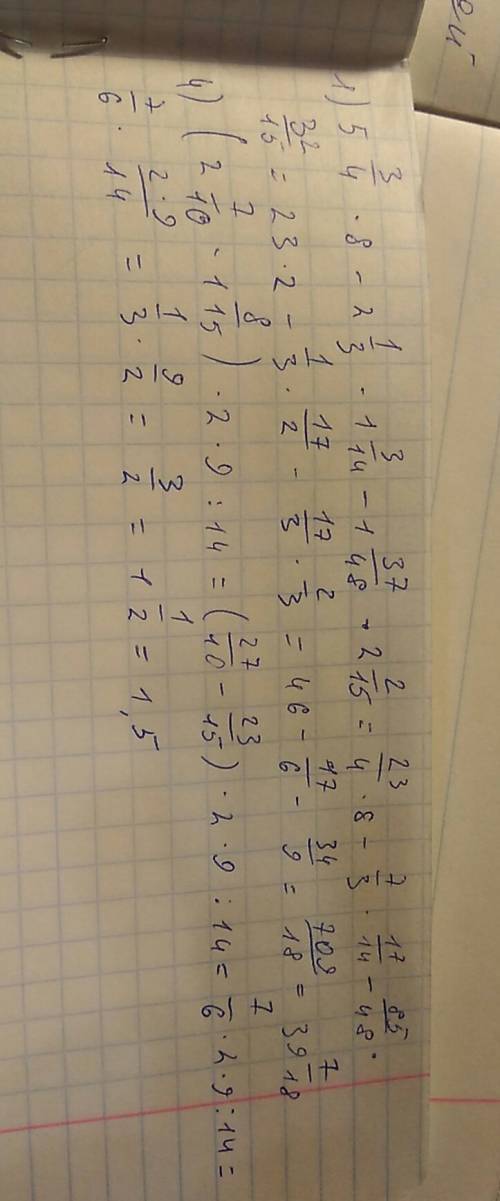 1) 5 3/4 · 8 - 2 1/3 · 1 3/14 - 1 37/48 · 2 2/15 = 23/4 · 8 - 7/3 · 17/14 - 85/48 ·
32/15 = 23 · 2 - 1/3 · 17/2 - 17/3 · 2/3 = 46 - 17/6 - 34/9 = 709/18 = 39 7/18
4) ( 2 7/10 - 1 8/15 ) · 2 · 9 : 14 = ( 27/10 - 23/15 ) · 2 · 9 : 14 = 7/6 · 2 · 9 : 14 =
7/6 · 2·9/14 = 1/3 · 9/2 = 3/2 = 1 1/2 = 1,5